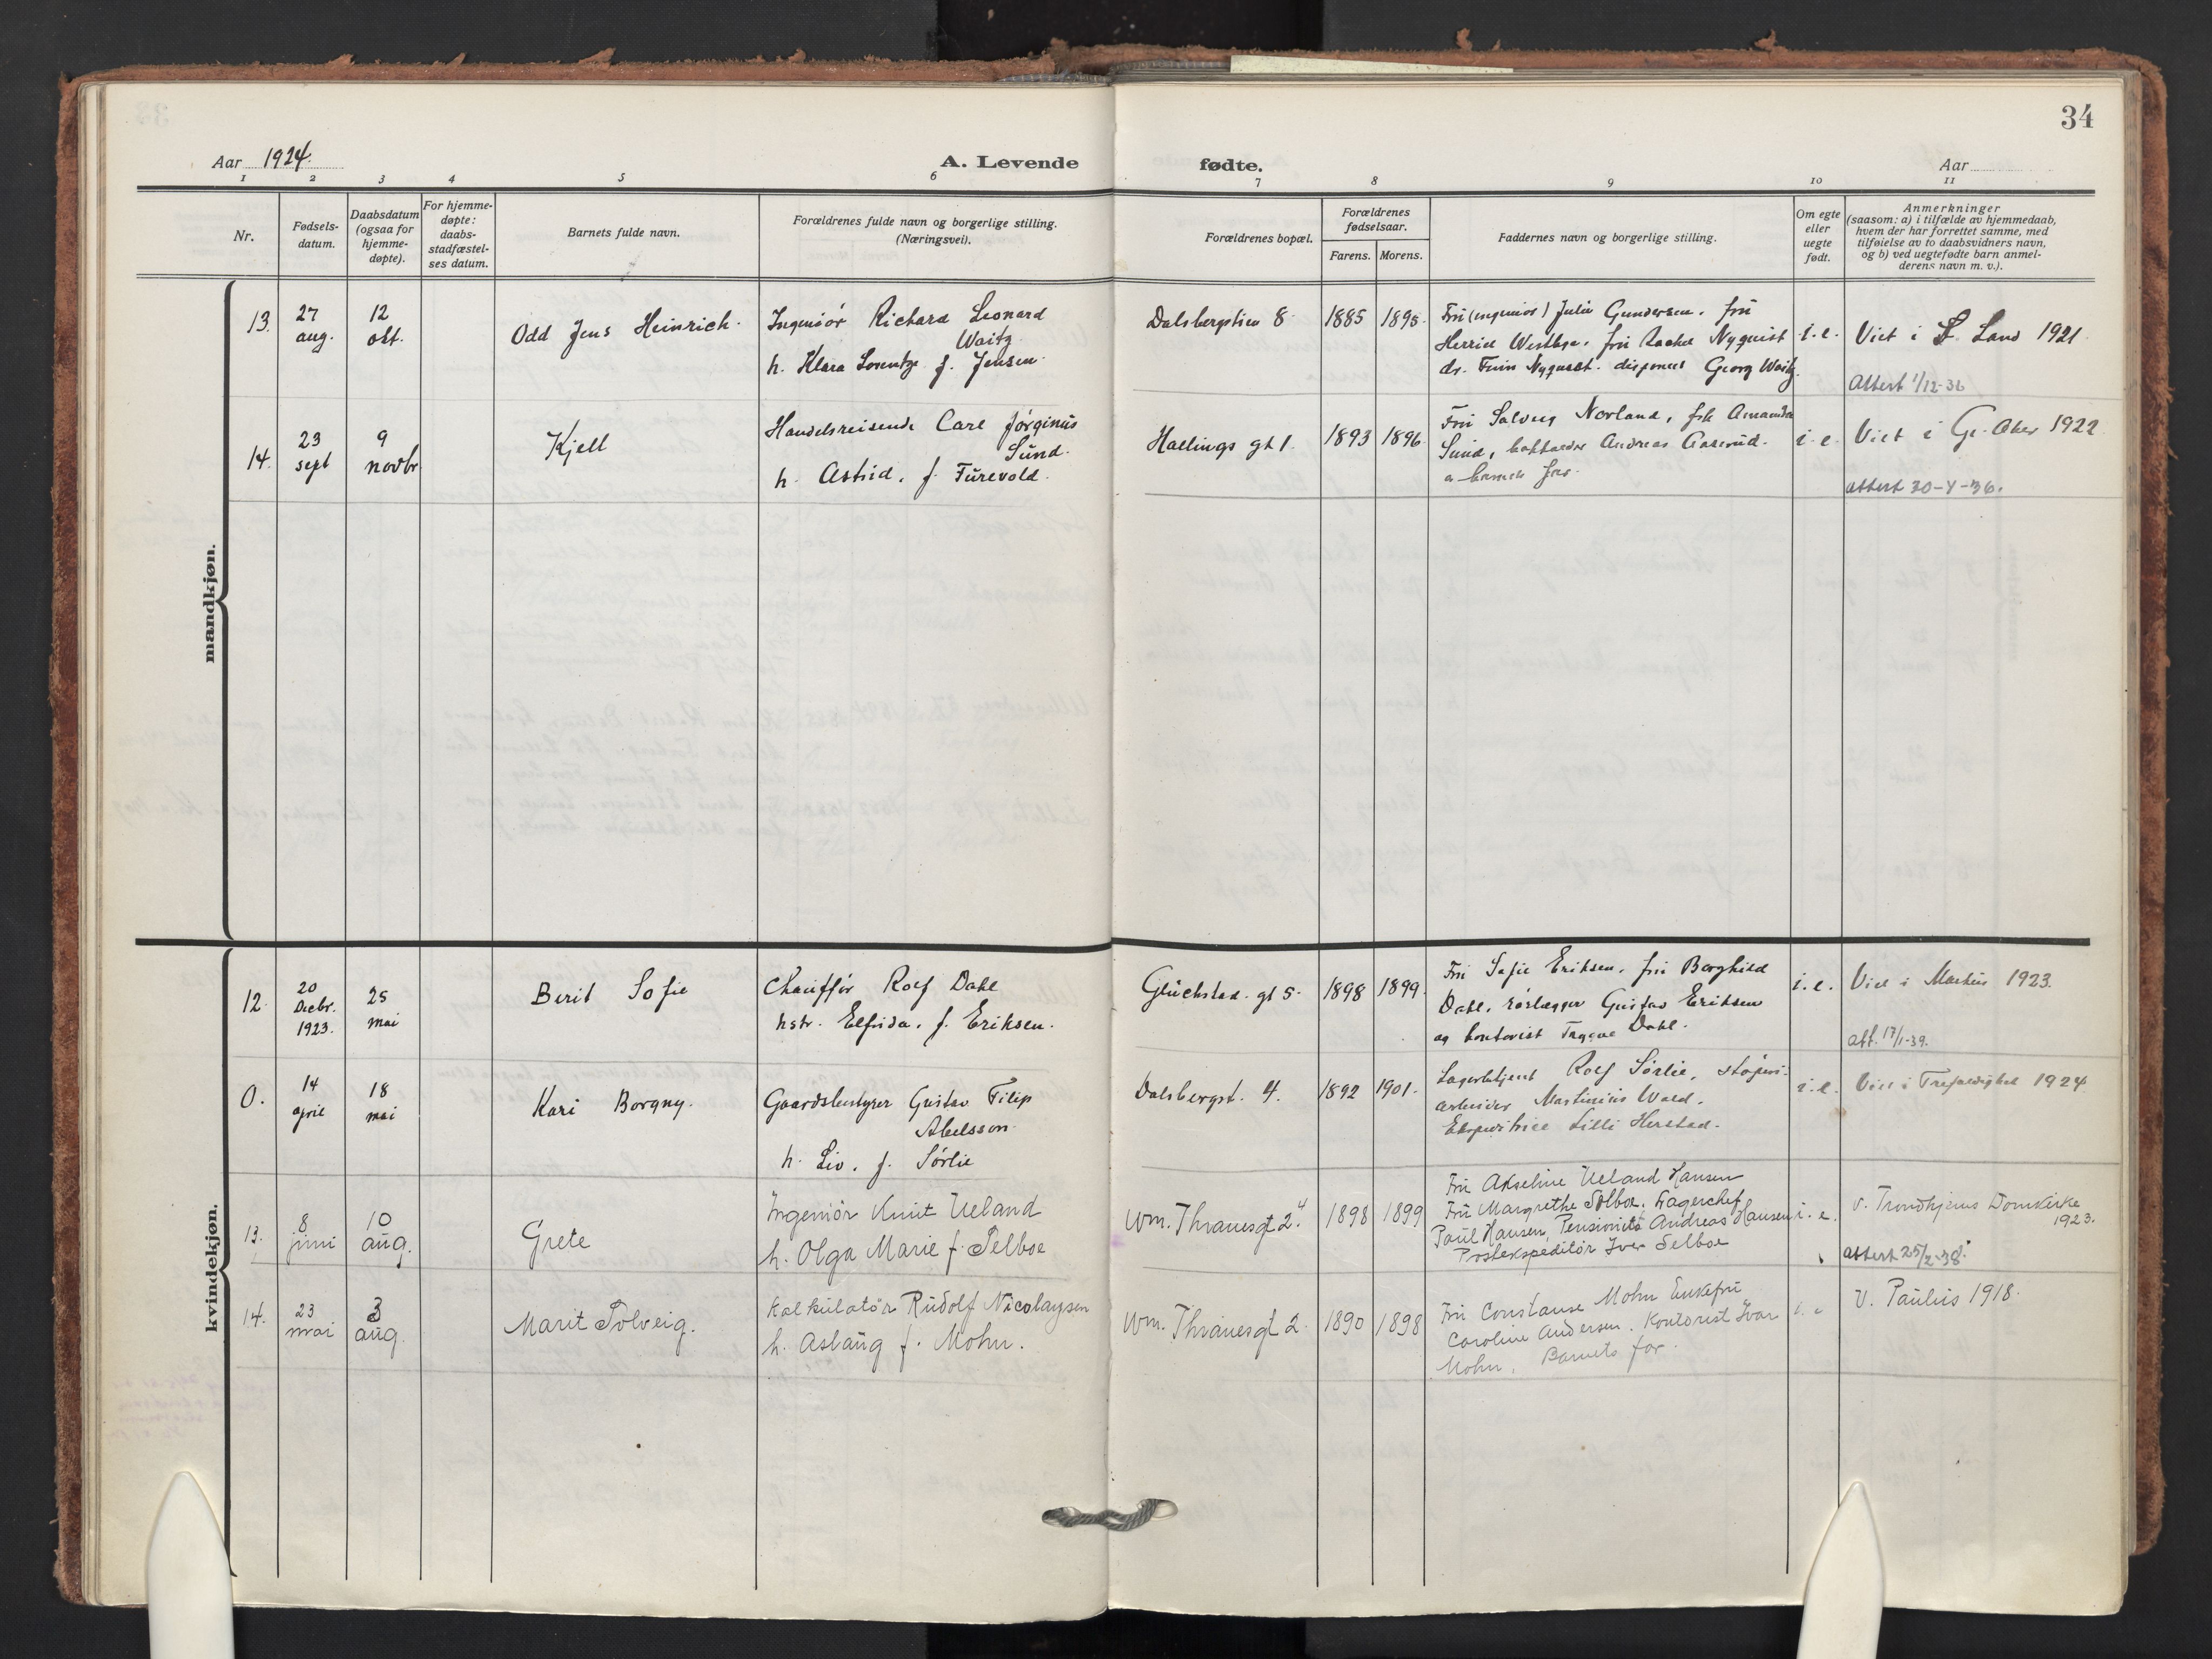 34
Aar 1924.
A. Levende fødte.
Aar
1 2 3 4 5 6 7 8 9 10 11
Nr.
Fødsels-
datum.
Daabsdatum
(ogsaa for
hjemme-
døpte).
For hjemme-
døpte:
daabs-
stadfæstel-
ses datum.
Barnets fulde navn.
Forældrenes fulde navn og borgerlige stilling.
(Næringsvei).
Forældrenes bopæl.
Forældrenes
fødselsaar.
Farens. Morens.
Faddernes navn og borgerlige stilling.
Om egte
eller
uegte
født.
Anmerkninger
(saasom: a) i tilfælde av hjemmedaab,
hvem der har forrettet samme, med
tilføielse av to daabsvidners navn,
og b) ved uegtefødte barn anmel-
derens navn m. v.).
mandkjøn.
13.
27
aug.
12
okt.
Odd Jens Heinrich.
Ingeniør Richard Leonard
Waitz
h. Klara Lorentze f. Jensen.
Dalsbergstien 8
1885
1895.
Fru (ingeniør) Julie Gundersen, fru
Westbye, fru Rachel Nyquist
dr. Finn Nyquist. disponent Georg Waitz.
i.e.
Viet i Land 1921
Attest 1/12-36
14.
23
sept
9
novbr
Kjell
Handelsreisende Carl Jørginus
Sund.
h. Astrid, f. Furevold.
Hallings gt 1.
1893
1896
Fru Solveig Norland, frk Amanda
Sund, bokholder Andreas Aaserud.
o barnets far.
i.e.
Viet i Gr. Aker 1922
attest 30-4-36.
kvindekjøn.
12.
20
Decbr.
1923.
25
mai
Berit Sofie
Chauffør Rolf Dahl
hstr. Elfrida, f. Eriksen.
Glückstad. gt 5.
1898
1899.
Fru Sofie Eriksen, fru Borghild
Dahl, rørlægger Gustav Eriksen
og kontorist Trygve Dahl.
i.e.
Viet i Markus 1923.
att. 17/1-39.
0.
14
april
18
mai
Kari Borgny.
Gaardsbestyrer Gustav Filip
Abelsson
h. Liv, f. Sørlie
Dalsbergst. 4.
1892
1901.
Lagerbetjent Rolf Sørlie, støperi-
arbeider Martinius Wold,
Ekspeditrice Lilli Herstad.
i.e.
Viet i Trefoldighet 1924
13.
8
juni
10
aug.
Grete
Ingeniør Knut Ueland
h. Olga Marie f. Selboe
Wm. Thranesgt 24
1898
1899
Fru Akseline Ueland Hansen
Fru Margrethe Selboe, Lagerchef
Paul Hansen, Pensionist Andreas Hansen
Postekspeditør Iver Selboe
i.e.
V. Trondhjems Domkirke
1923.
attest 25/2-38.
14.
23
mai
3
aug.
Marit Solveig.
Kalkulatør Rudolf Nicolaysen
h. Aslaug f. Mohn.
Wm. Thranesgt 2
1890
1898
Fru Constanse Mohn Enkefru
Caroline Andersen. Kontorist Ivar
Mohn, Barnets far.
i.e
V. Paulus 1918.